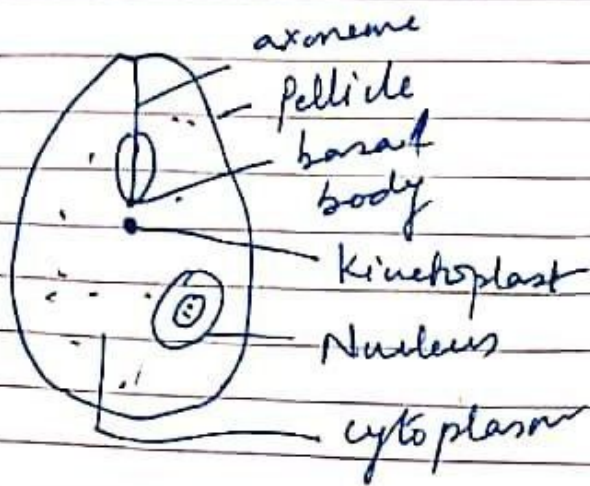 axoneme
Pellicle
basal
body
Kinetoplast
Nucleus
cytoplasm